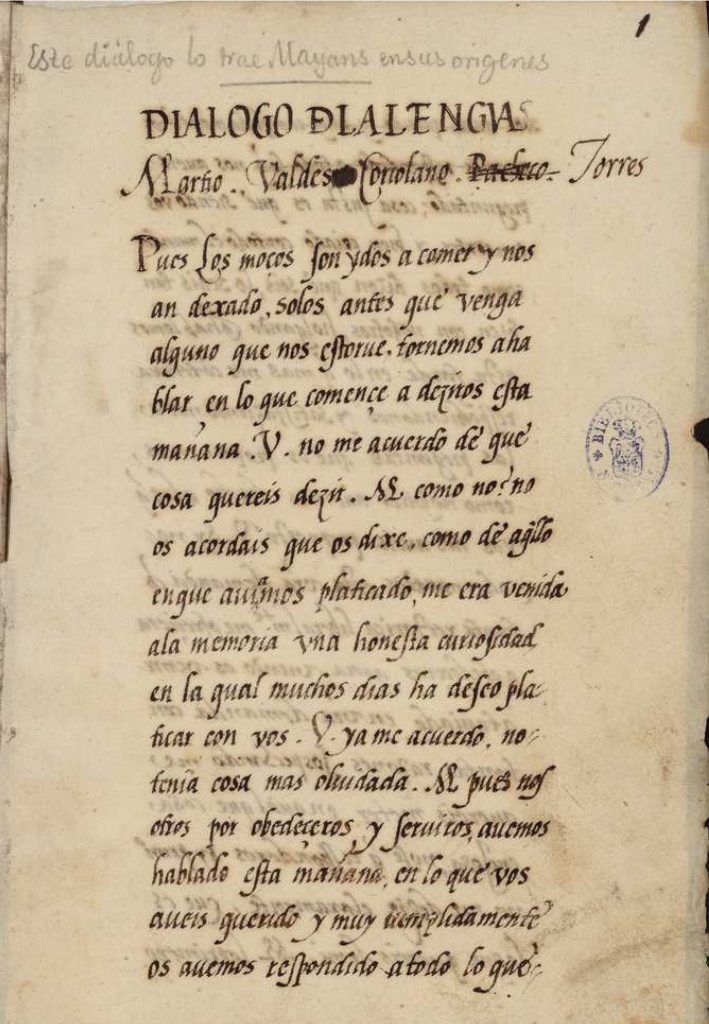 1
Este diálogo lo trae Mayans en sus origenes
DIALOGO DLALENGVAS
Martio. Valdés Coriolano. Pacheco. Torres
Pues los moços son ydos a comer y nos
an dexado, solos antes que venga
alguno que nos estorue. tornemos a ha
blar en lo que començe a deziros esta
mañana. V. no me acuerdo de que
cosa quereis dezir. M como no? no
os acordais que os dixe, como de aqllo
en que auiamos platicado, me era venida
ala memoria vna honesta curiosidad,
en la qual muchos dias ha deseo pla-
ticar con vos. V. ya me acuerdo. no-
tenia cosa mas oluidada. M pues nos
otros por obedeçeros, y seruiros, auemos
hablado esta mañana, en lo que vos
aueis querido y muy cumplidamente
os auemos respondido a todo lo que-
BIBLIOTECA